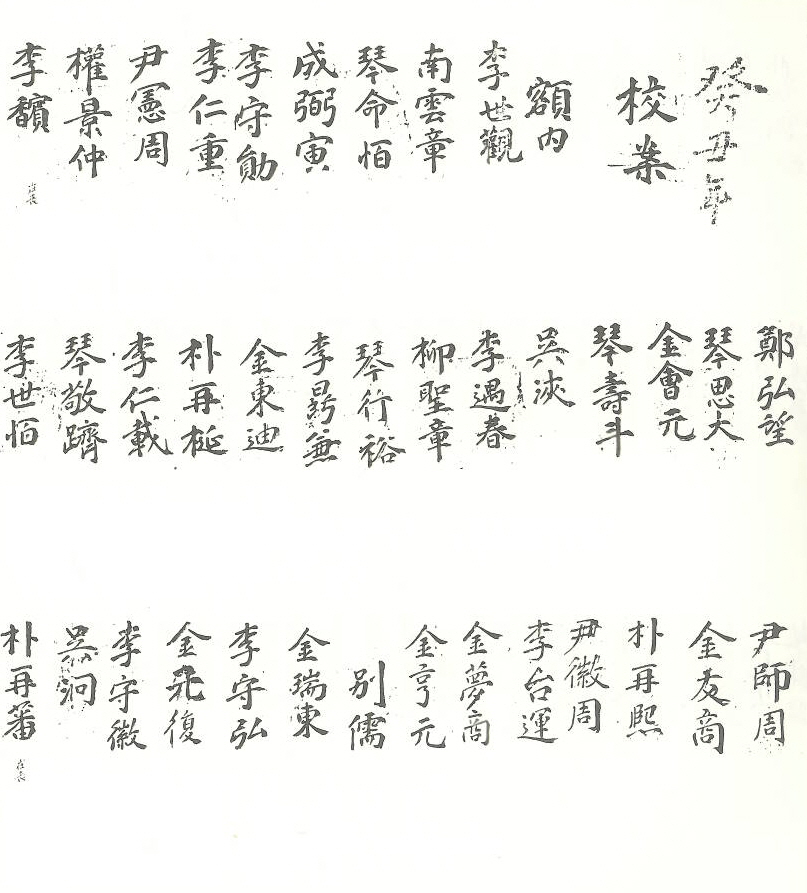 癸丑年
校案
額內
李世觀
南雲章
琴命恒
成弼寅
李守勛
李仁重
尹憲周
權景仲
李馪
鄭弘望
琴思大
金會元
琴壽斗
吳浹
李遇春
柳聖章
琴行裕
李無
金東迪
朴再梴
李仁載
琴敬躋
李世恒
尹師周
金友商
朴再熙
尹徽周
李台運
金夢商
金亨元
別儒
金瑞東
李守弘
金復
李守徽
吳泂
朴再蕃